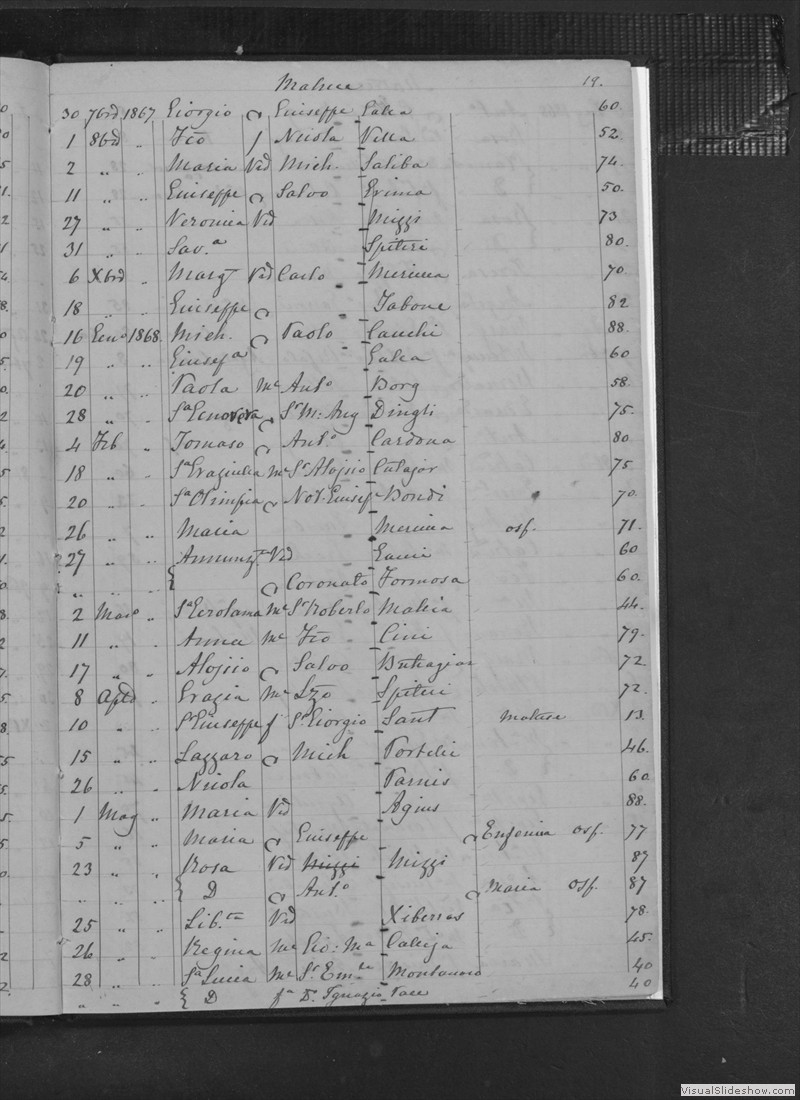 Maschi 19.
30 7bre 1867 Giorgio Giuseppe Galea 60.
1 8bre „ Fco f Nicola Vella 52
2 „ „ Maria Vid Mich. Saliba 74.
11 „ „ Giuseppe Salvo Grima 50.
27 „ „ Veronica Vid Mizzi 73
31 „ „ Sav.a Spiteri 80.
6 Xbre „ Marg Vid Carlo Mercieca 70
18 „ „ Giuseppe Tabone 82
16 Gen 1868. Mich. Paolo Cauchi 88.
19 „ „ Giusepa Galea 60
20 „ „ Paola Me Anto Borg 58.
28 „ „ Sa Genovefa Sr M: Aug Dingli 75.
4 Feb „ Tomaso Ant.o Cardona 80
18 „ „ Sa Graziulla Me Sr Aloisio Cutajar 75
20 „ „ Sa Olimpia Not. Giusep Bondi 70.
26 „ „ Maria osp. 71.
27 „ „ Annunzta Vid 60
„ „ „ { Coronato Formosa 60.
2 Marzo „ Sa Gerolama Me Sr Roberto 44.
11 „ „ Anna Me Fco Cini 79.
17 „ „ Aloisio Salvo Buttigieg 72
8 Aple „ Grazia Me Lzo Spiteri 72.
10 „ „ Sr Giuseppe f Sr Giorgio Sant 13.
15 „ „ Lazzaro Mich Portelli 46.
26 „ „ Nicola Farnis 60
1 Mag „ Maria Vid Agius 88.
5 „ „ Maria Giuseppe Eufemia osp. 77
23 „ „ Rosa Vid Mizzi Mizzi 87
„ „ „ { D Ant.o Maria osp. 87
25 „ „ Lib.ta Vid Xiberras 78.
26 „ „ Regina Me Gio: Ma Calleja 45.
28 „ „ Sa Lucia Me Sr Emle Montanaro 40
„ „ „ { D fa Dr Ignazio Pace 40
VisualSlideshow.com